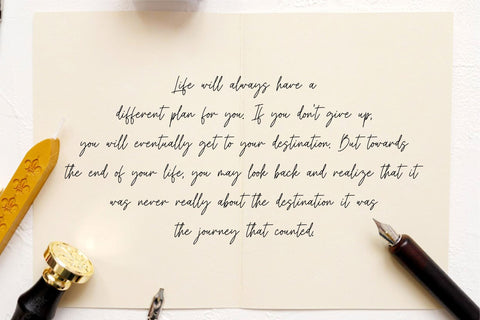 Life will always have a
different plan for you. If you don't give up,
you will eventually get to your destination. But towards
the end of your life, you may look back and realize that it
was never really about the destination it was
the journey that counted.